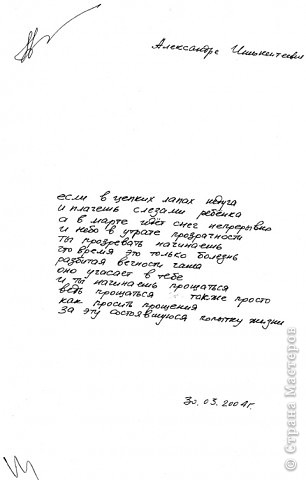 Александре
если в цепких лапах недуга
и плачешь слезами ребёнка
а в марте идёт снег непрерывно
и небо в утрате прозрачности
ты прозревать начинаешь
что время это только болезнь
разбитая вечности чаша
оно угасает в тебе
и ты начинаешь прощаться
ведь прощаться также просто
как просить прощения
за эту состоявшуюся попытку жизни
30.03.2004г.
© Страна Мастеров